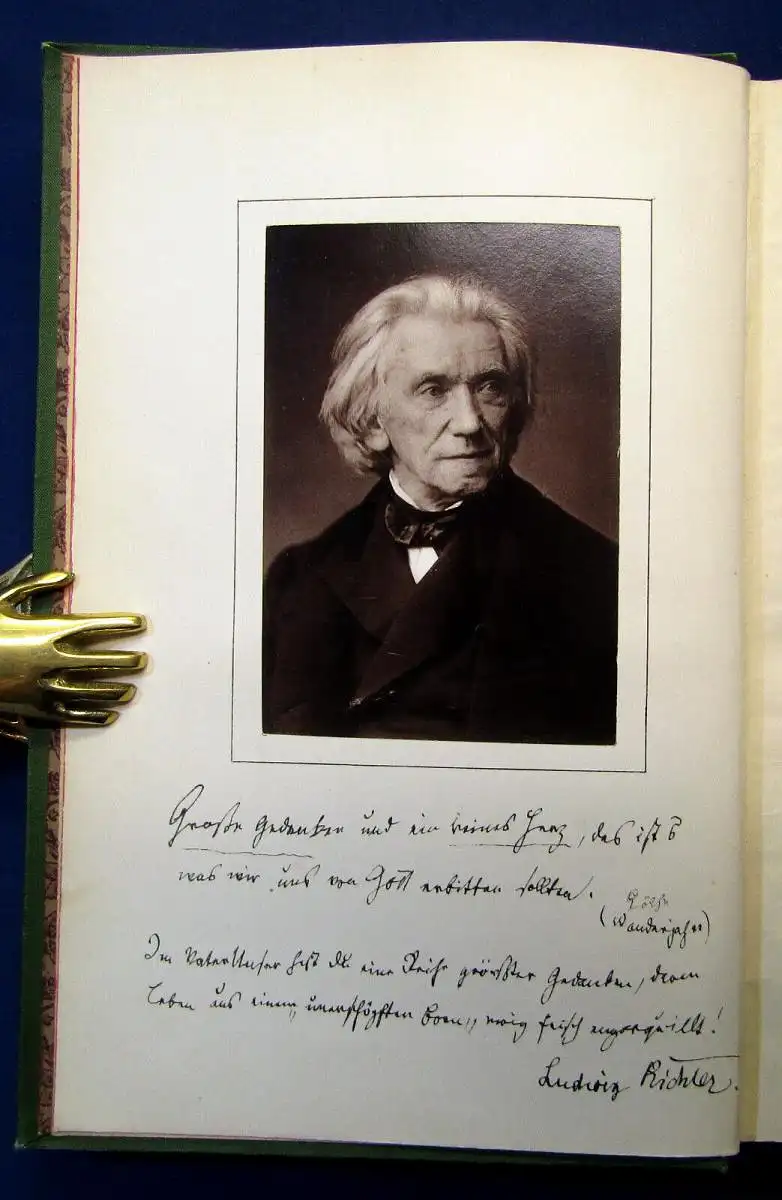 Große Gedanken und ein reines Herz, das ists
was wir uns von Gott erbitten sollten.
Göthe
(Wanderjahre)
Im VaterUnser hast du eine Reihe größter Gedanken, deren
Leben aus einem „unerschöpften Born„ ewig frisch emporquillt!
Ludwig Richter.